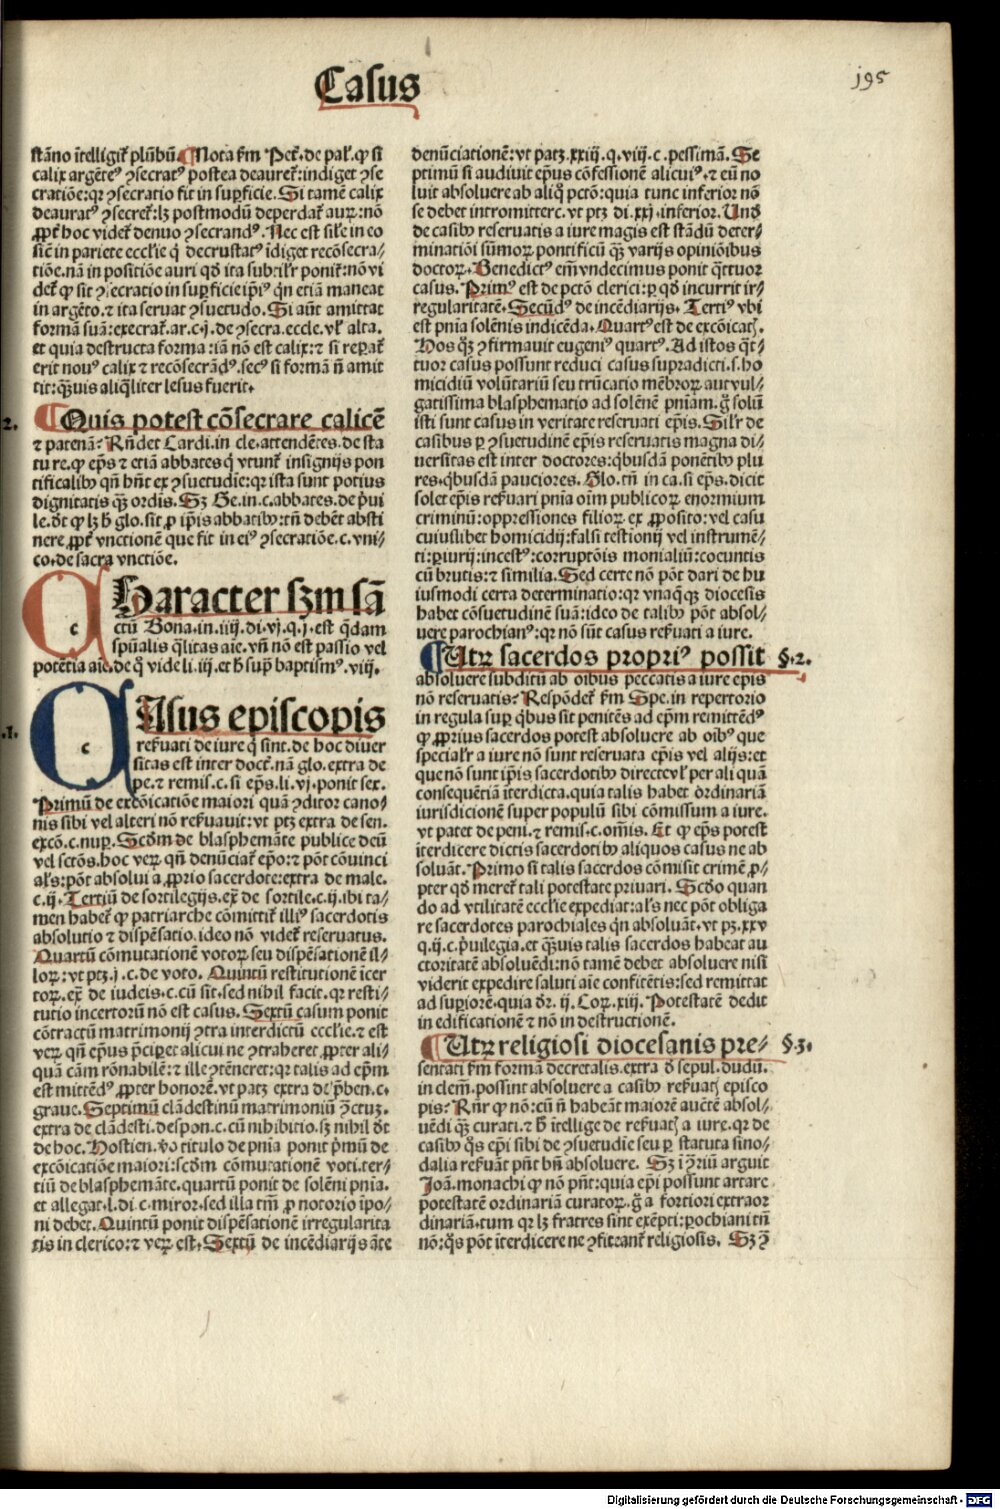 Casus
195
stāno ītelligit᷑ plūbū. ¶Nota ẜm Pet᷑. de pal᷑. ꝙ si
calix argēteꝰ ꝯsecratꝰ postea deauret᷑: indiget ꝯse
cratiōe: qꝛ ꝯsecratio fit in suꝑficie. Si tamē calix
deauratꝰ ꝯsecret᷑: lꝫ postmodū deperdat᷑ auꝝ: nō
ꝓpt᷑ hoc videt᷑ denuo ꝯsecrandꝰ. Nec est sil᷑e in eo
sic̄ in pariete eccl̄ie q̇ decrustatꝰ īdiget recōsecra⸗
tiōe. nā in positiōe auri qđ ita subtilr̄ ponit᷑: nō vi
det᷑ ꝙ sit ꝯsecratio in suꝑficie ip̄iꝰ qn̄ etiā maneat
in argēto. ⁊ ita seruat ꝯsuetudo. Si aūt amittat
formā suā: execrat᷑. ar. c. j. de ꝯsecra. eccle. vl᷑ alta.
et quia destructa forma: iā nō est calix: ⁊ si reꝑat᷑
erit nouꝰ calix ⁊ recōsecrādꝰ. secꝰ si formā n̄ amit
tit: qꝫuis aliq̄liter lesus fuerit.
2. ¶Quis potest cōsecrare calicē
⁊ patenā? Rn̄det Cardi. in cle. attendētes. de sta
tu re. ꝙ ep̄s ⁊ etiā abbates q̇ vtunt᷑ insignijs pon
tificalibꝰ qn̄ hn̄t ex ꝯsuetudie: qꝛ ista sunt potius
dignitatis qꝫ ordis. Sꝫ Ge. in. c. abbates. de p̄ui
le. dt̄ ꝙ lꝫ h̄ glo. sit ꝓ ip̄is abbatibꝰ: tn̄ debēt absti
nere ꝓpt᷑ vnctionē que fit in eiꝰ ꝯsecratiōe. c. vni⸗
co. de sacra vnctiōe.
c Haracter sꝫm sā
ctū Bona. in. iiij. di. vj. q. j. est q̄dam
spūalis q̄litas aīe. vn̄ nō est passio vel
potētia aīe. de q̄ vide li. iij. et h̄ supͣ baptismꝰ. viij.
.1. c Asus episcopis
reẜuati de iure q̇ sint. de hoc diuer
sitas est inter doct᷑. nā glo. extra de
pe. ⁊ remis. c. si ep̄s. li. vj. ponit sex.
Primū de excōicatiōe maiori quā ꝯditor cano⸗
nis sibi vel alteri nō reẜuauit: vt ptꝫ extra de sen.
excō. c. nuꝑ. Scd̄m de blasphemāte publice deū
vel sctōs. hoc veꝝ qn̄ denūciat᷑ ep̄o: ⁊ pōt cōuinci
al̄s: pōt absolui a ꝓprio sacerdote: extra de male.
c. ij. Tertiū de sortilegijs. ex̄ de sortile. c. ij. ibi ta⸗
men habet᷑ ꝙ patriarche cōmittit᷑ illiꝰ sacerdotis
absolutio ⁊ dispēsatio. ideo nō videt᷑ reseruatus.
Quartū cōmutationē votoꝝ seu dispēsationē il⸗
loꝝ: vt ptꝫ. j. c. de voto. Quintū restitutionē īcer
toꝝ. ex̄ de iudeis. c. cū sit. sed nihil facit. qꝛ resti⸗
tutio incertorū nō est casus. Sextū casum ponit
cōtractū matrimonij ꝯtra interdictū eccl̄ie. ⁊ est
veꝝ qn̄ ep̄us p̄ciꝑet alicui ne ꝯtraheret ꝓpter ali⸗
quā cām rōnabilē: ⁊ ille ꝯtēneret: qꝛ talis ad ep̄m
est mittēdꝰ ꝓpter honorē. vt patꝫ extra de p̄ben. c.
graue. Septimū clādestinū matrimoniū ꝯ̄ctuꝫ.
extra de clādesti. despon. c. cū nihibitio. sꝫ nihil dt̄
de hoc. Hostien. vo titulo de pnīa ponit p̄mū de
excōicatiōe maiori: scd̄m cōmutationē voti. ter⸗
tiū de blasphemāte. quartū ponit de solēni pnīa.
et allegat. l. di. c. miror. sed illa tm̄ ꝓ notorio īpo⸗
ni debet. Quintū ponit dispēsationē irregularita
tis in clerico: ⁊ veꝝ est. Sextū de incēdiarijs āte
denūciationē: vt patꝫ. xxiij. q. viij. c. pessimā. Se
ptimū si audiuit ep̄us cōfessionē alicuiꝰ. ⁊ eū no
luit absoluere ab aliq̊ pctō: quia tunc inferior nō
se debet intromittere. vt ptꝫ di. xxj. inferior. Unđ
de casibꝰ reseruatis a iure magis est stādū deter⸗
minatiōi sūmoꝝ pontificū qꝫ varijs opiniōibus
doctoꝝ. Benedictꝰ em̄ vndecimus ponit q̄ttuor
casus. Primꝰ est de pctō clerici: ꝑ qđ incurrit ir⸗
regularitatē. Secūdꝰ de incēdiarijs. Tertiꝰ vbi
est pnīa solēnis indicēda. Quartꝰ est de excōicat᷑.
Hos qꝫ ꝯfirmauit eugeniꝰ quartꝰ. Ad istos q̄t⸗
tuor casus possunt reduci casus supradicti. s. ho
micidiū volūtariū seu trūcatio mēbroꝝ. aut vul⸗
gatissima blasphematio ad solēnē pnīam. g̊ solū
isti sunt casus in veritate reseruati ep̄is. Sil᷑r de
casibus ꝑ ꝯsuetudinē ep̄is reseruatis magna di⸗
uersitas est inter doctores: q̇busdā ponētibꝰ plu
res. q̇busdā pauciores. Glo. tn̄ in ca. si ep̄s. dicit
solet ep̄is reẜuari pnīa oīm publicoꝝ enormium
criminū: oppressiones filioꝝ. ex ꝓposito: vel casu
cuiuslibet homicidij: falsi testionij vel instrumē⸗
ti: ꝑiurij: incestꝰ: corruptōis monialiū: coeuntis
cū brutis: ⁊ similia. Sed certe nō pōt dari de hu
iusmodi certa determinatio: qꝛ vnaq̄qꝫ diocesis
habet cōsuetudinē suā: ideo de talibꝰ pōt absol⸗
uere parochianꝰ: qꝛ nō sūt casus reẜuati a iure.
¶Utꝝ sacerdos propriꝰ possit §.2.
absoluere subditū ab oībus peccatis a iure epis
nō reseruatis? Respōdet᷑ ẜm Spe. in repertorio
in regula suꝑ q̇bus sit penitēs ad ep̄m remittēdꝰ
ꝙ ꝓprius sacerdos potest absoluere ab oībꝰ que
specialr̄ a iure nō sunt reseruata ep̄is vel alijs: et
que nō sunt ip̄is sacerdotibꝰ directe vl᷑ per ali quā
consequētiā īterdicta. quia talis habet ordinariā
iurisdictionē super populū sibi cōmissum a iure.
vt patet de peni. ⁊ remis. c. om̄is. Et ꝙ ep̄s potest
īterdicere dictis sacerdotibꝰ aliquos casus ne ab
soluāt. Primo si talis sacerdos cōmisit crimē ꝓ⸗
pter qđ meret᷑ tali potestate priuari. Scđo quan
do ad vtilitatē eccl̄ie expediat: al̄s nec pōt obliga
re sacerdotes parochiales qn̄ absoluāt. vt pꝫ. xxv
q. ij. c. p̄uilegia. et qꝫuis talis sacerdos habeat au
ctoritatē absoluēdi: nō tamē debet absoluere nisi
viderit expedire saluti aīe confitētis: sed remittat
ad suꝑiorē. quia dr̄. ij. Coꝝ. xiij. Potestatē dedit
in edificationē ⁊ nō in destructionē.
¶Utꝝ religiosi diocesanis pre⸗ §.3.
sentati ẜm formā decretalis. extra đ sepul. dudū.
in clem̄. possint absoluere a casibꝰ reẜuat᷑ episco
pis? Rn̄r ꝙ nō: cū n̄ habeāt maiorē auc̄tē absol⸗
uēdi qꝫ curati. ⁊ h̄ itellige de reẜuat᷑ a iure. qꝛ de
casibꝰ q̊s ep̄i sibi de ꝯsuetudie seu ꝑ statuta sino⸗
dalia reẜuāt pn̄t bn̄ absoluere. Sꝫ ī ꝯ̄riū arguit
Joā. monachi ꝙ nō pn̄t: quia ep̄i possunt artare
potestatē ordinariā curatoꝝ. g̊ a fortiori extraor
dinariā. tum qꝛ lꝫ fratres sint exēpti: ꝑochiani tn̄
nō: q̊s pōt īterdicere ne ꝯfiteant᷑ religiosis. Sꝫ ꝯ̄
Digitalisierung gefördert durch die Deutsche Forschungsgemeinschaft - DFG